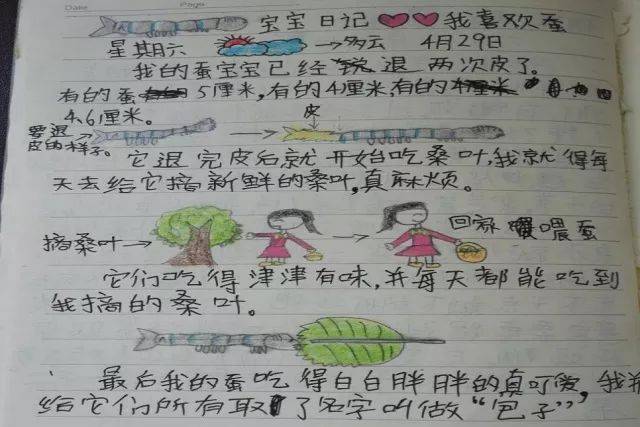 Date Page
宝宝日记 我喜欢蚕
星期六 →多云 4月29日
我的蚕宝宝已经退两次皮了。
有的蚕5厘米,有的4厘米,有的
4.6厘米。
皮
要退
皮的样子。
它退完皮后就开始吃桑叶,我就得每
天去给它摘新鲜的桑叶,真麻烦。
摘桑叶→ 回家喂蚕
它们吃得津津有味,并每天都能吃到
我摘的桑叶。
最后我的蚕吃得白白胖胖的真可爱,我并
给它们所有取了名字叫做“包子”